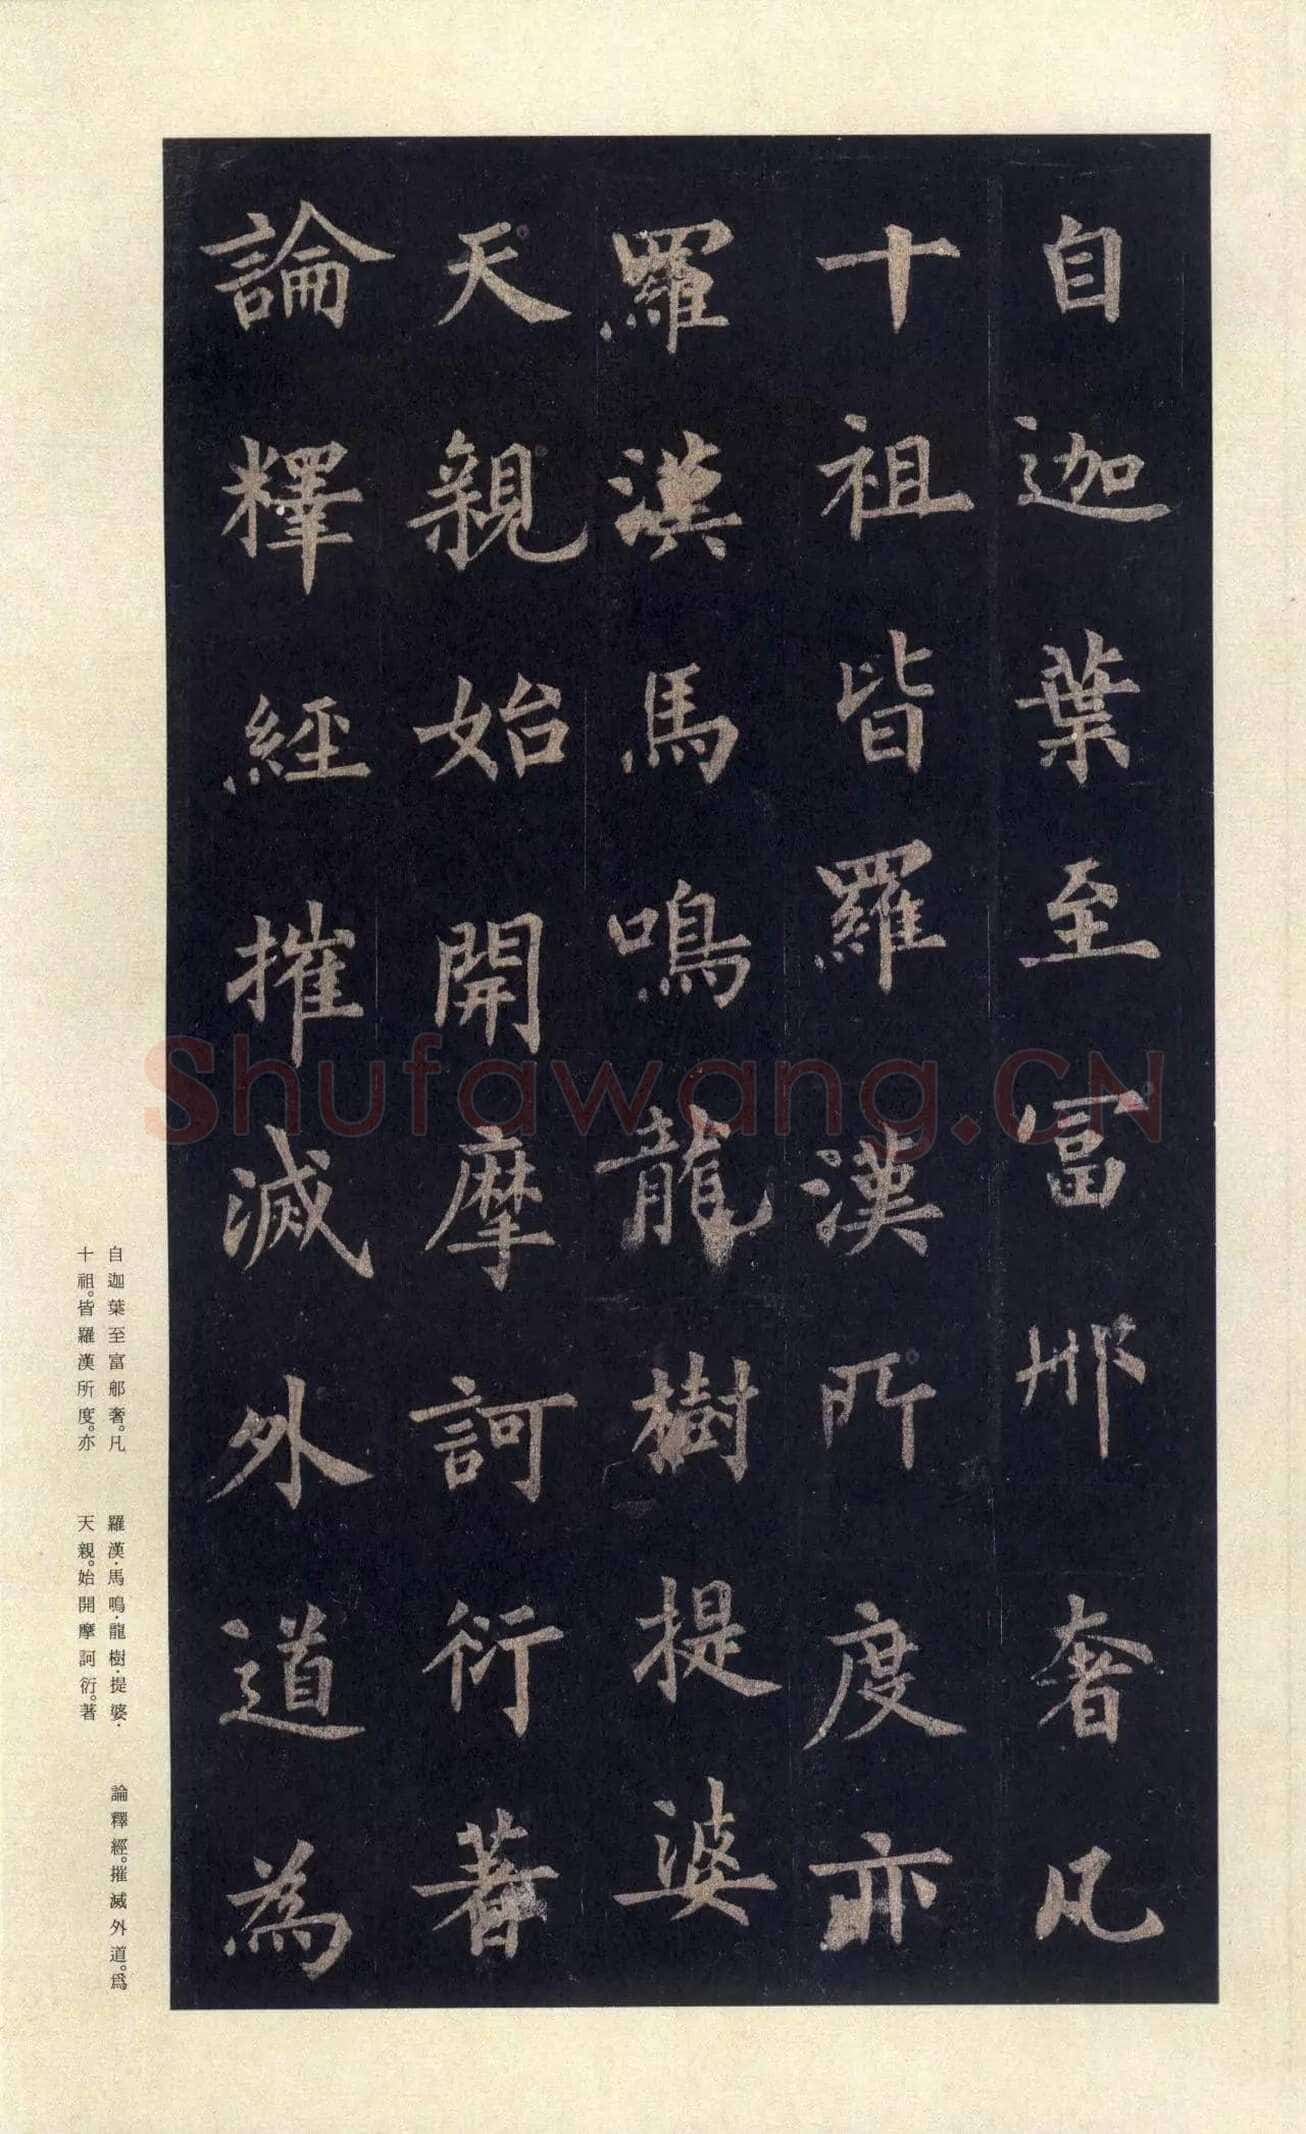 自迦葉至冨郍奢凡
十祖皆羅漢所度亦
羅漢馬鳴龍樹提婆
天親始開摩訶衍著
論釋經摧滅外道為
Shufawang.CN
自迦葉至富郍奢。凡
十祖。皆羅漢所度。亦
羅漢·馬鳴·龍樹·提婆·
天親。始開摩訶衍。著
論釋經。摧滅外道。爲